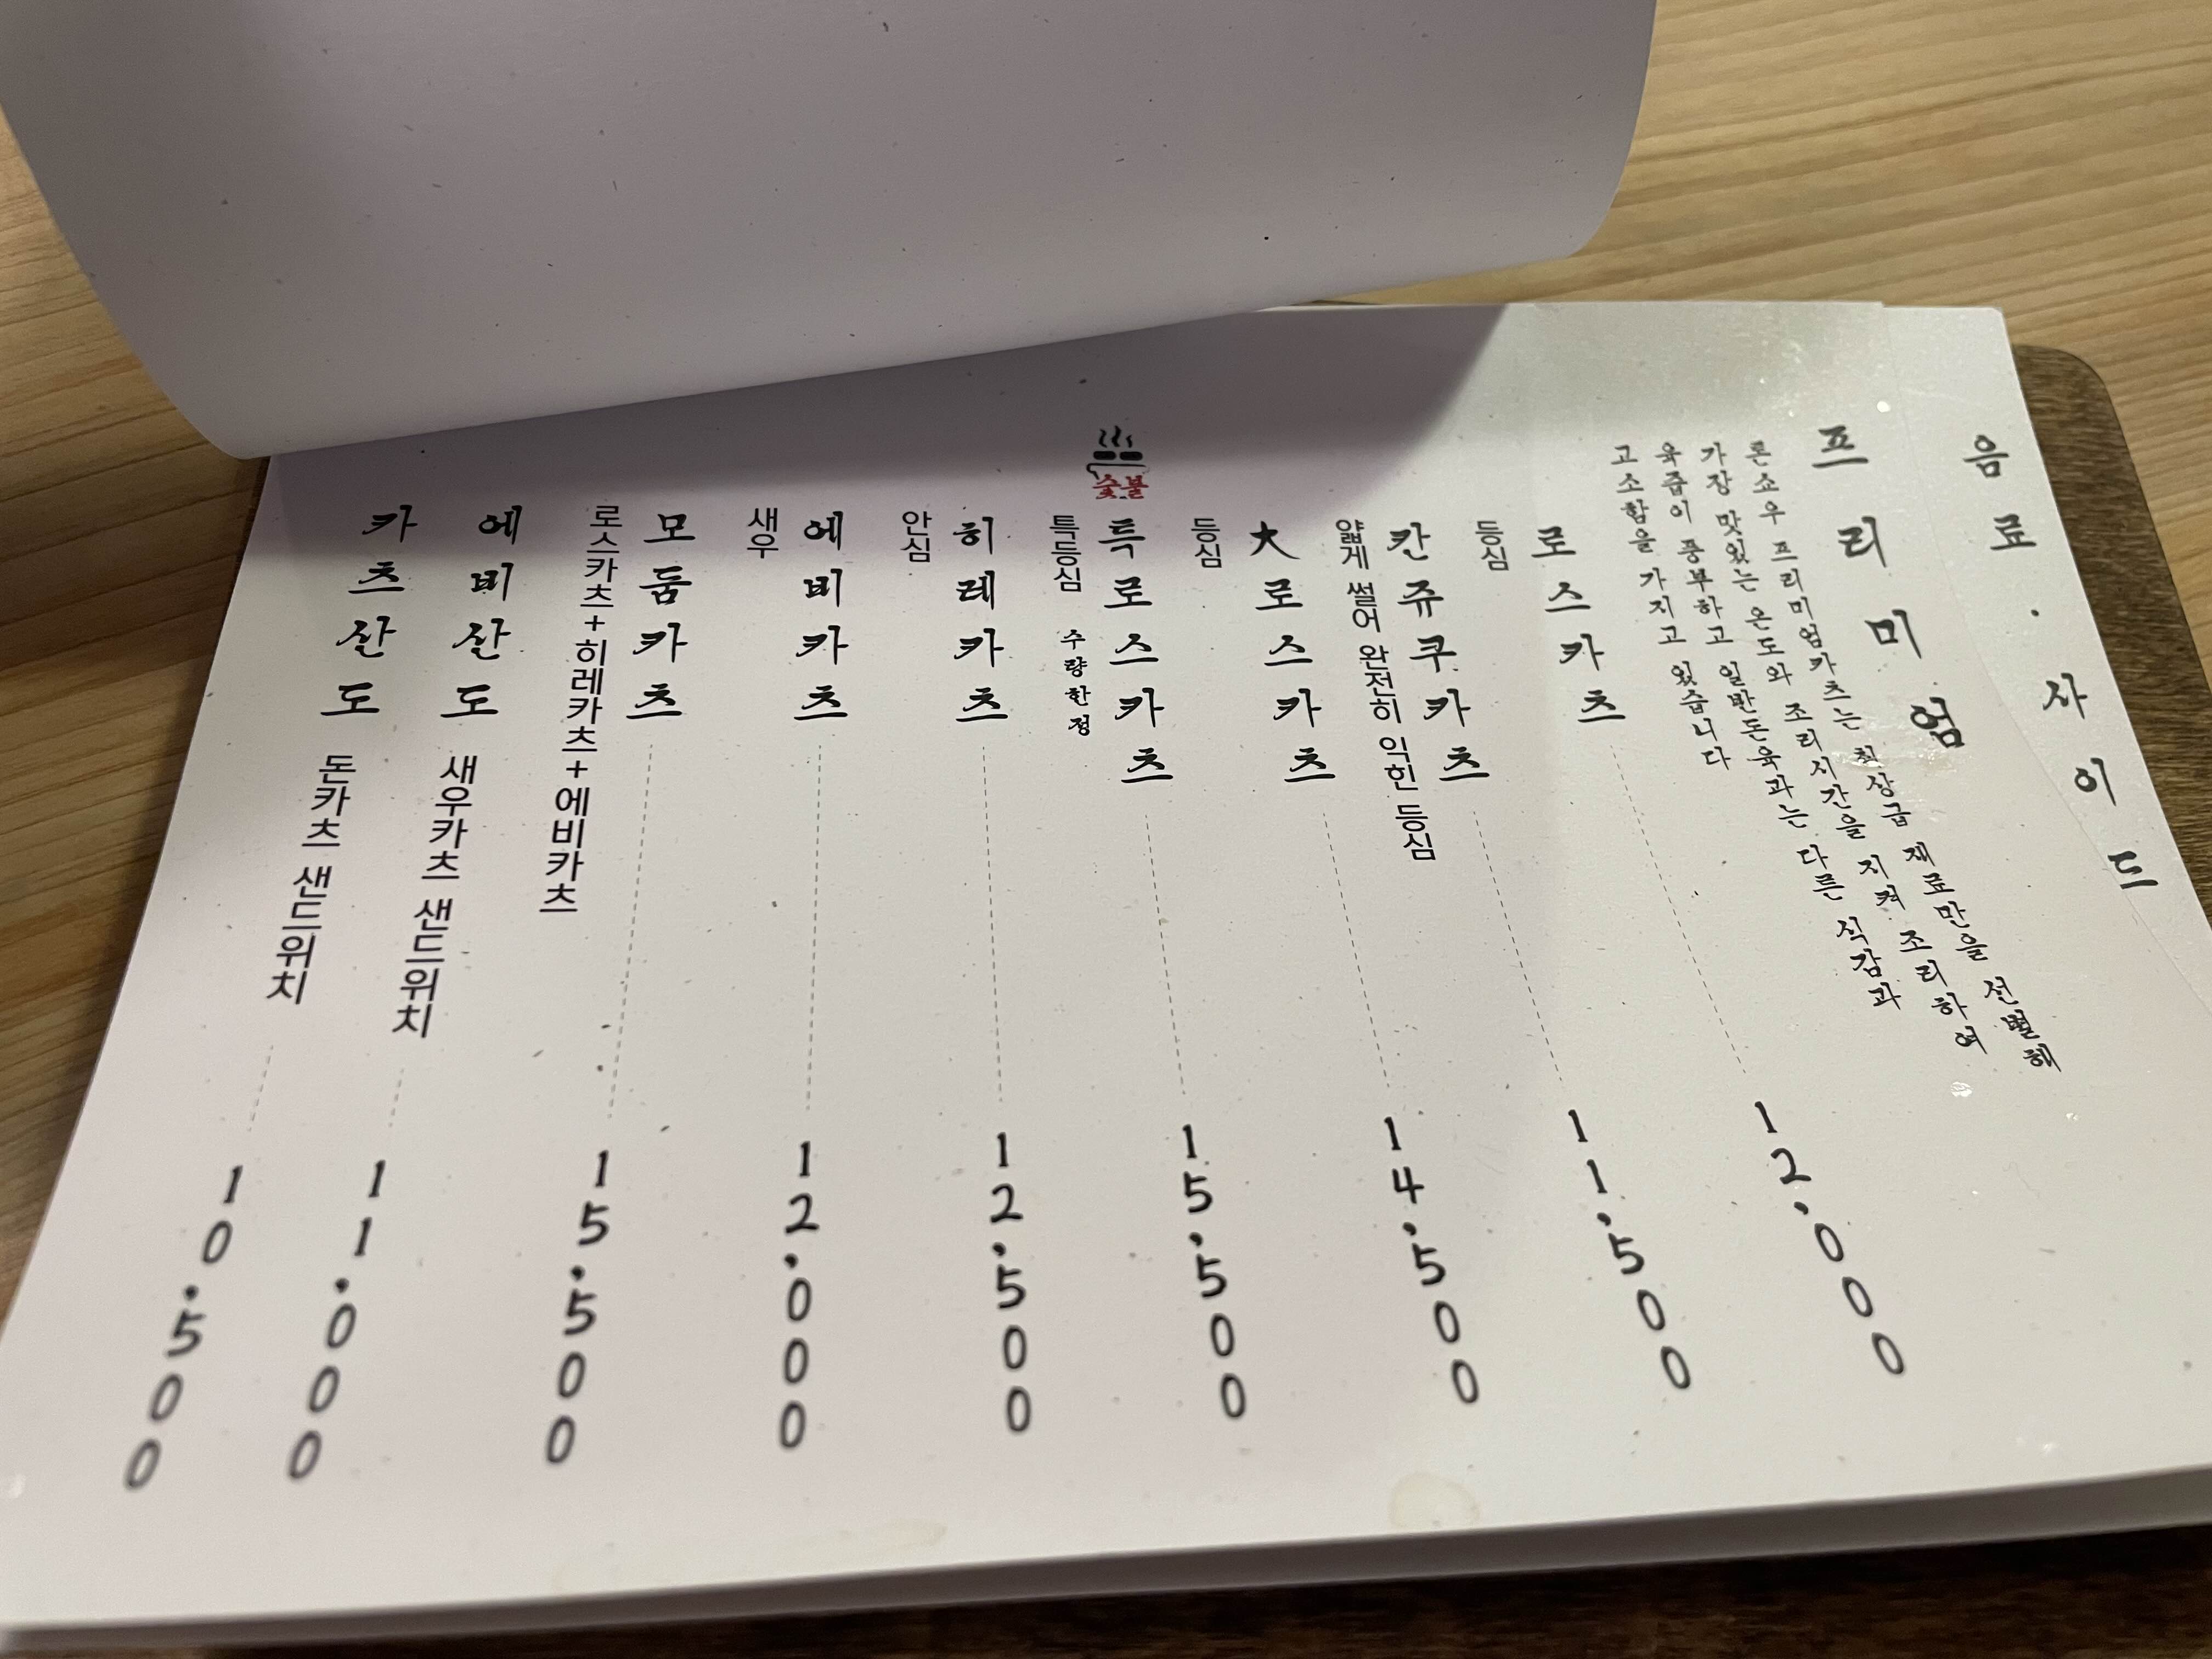 음료·사이드
프리미엄
론쇼우 프리미엄카츠는 최상급 재료만을 선별해
가장 맛있는 온도와 조리시간을 지켜 조리하여
육즙이 풍부하고 일반돈육과는 다른 식감과
고소함을 가지고 있습니다
로스카츠 12,000
등심
칸쥬쿠카츠 11,500
얇게 썰어 완전히 익힌 등심
大로스카츠 14,500
등심
숯불
특로스카츠 15,500
특등심 수량한정
히레카츠 12,500
안심
에비카츠 12,000
새우
모둠카츠 15,500
로스카츠+히레카츠+에비카츠
에비산도 새우카츠 샌드위치 11,000
카츠산도 돈카츠 샌드위치 10,500